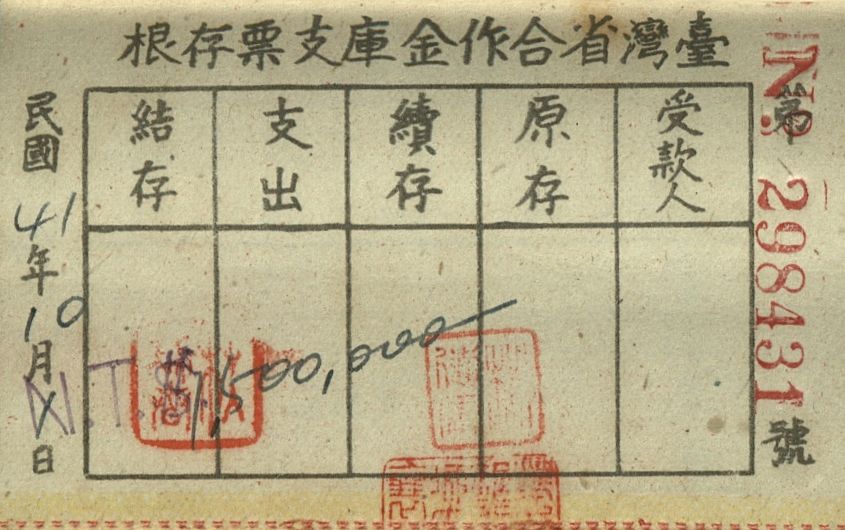 臺灣省合作金庫支票存根
第 No 298431 號
受款人
原存
續存
支出
結存
N.T.$1,500,000
民國41年10月1日